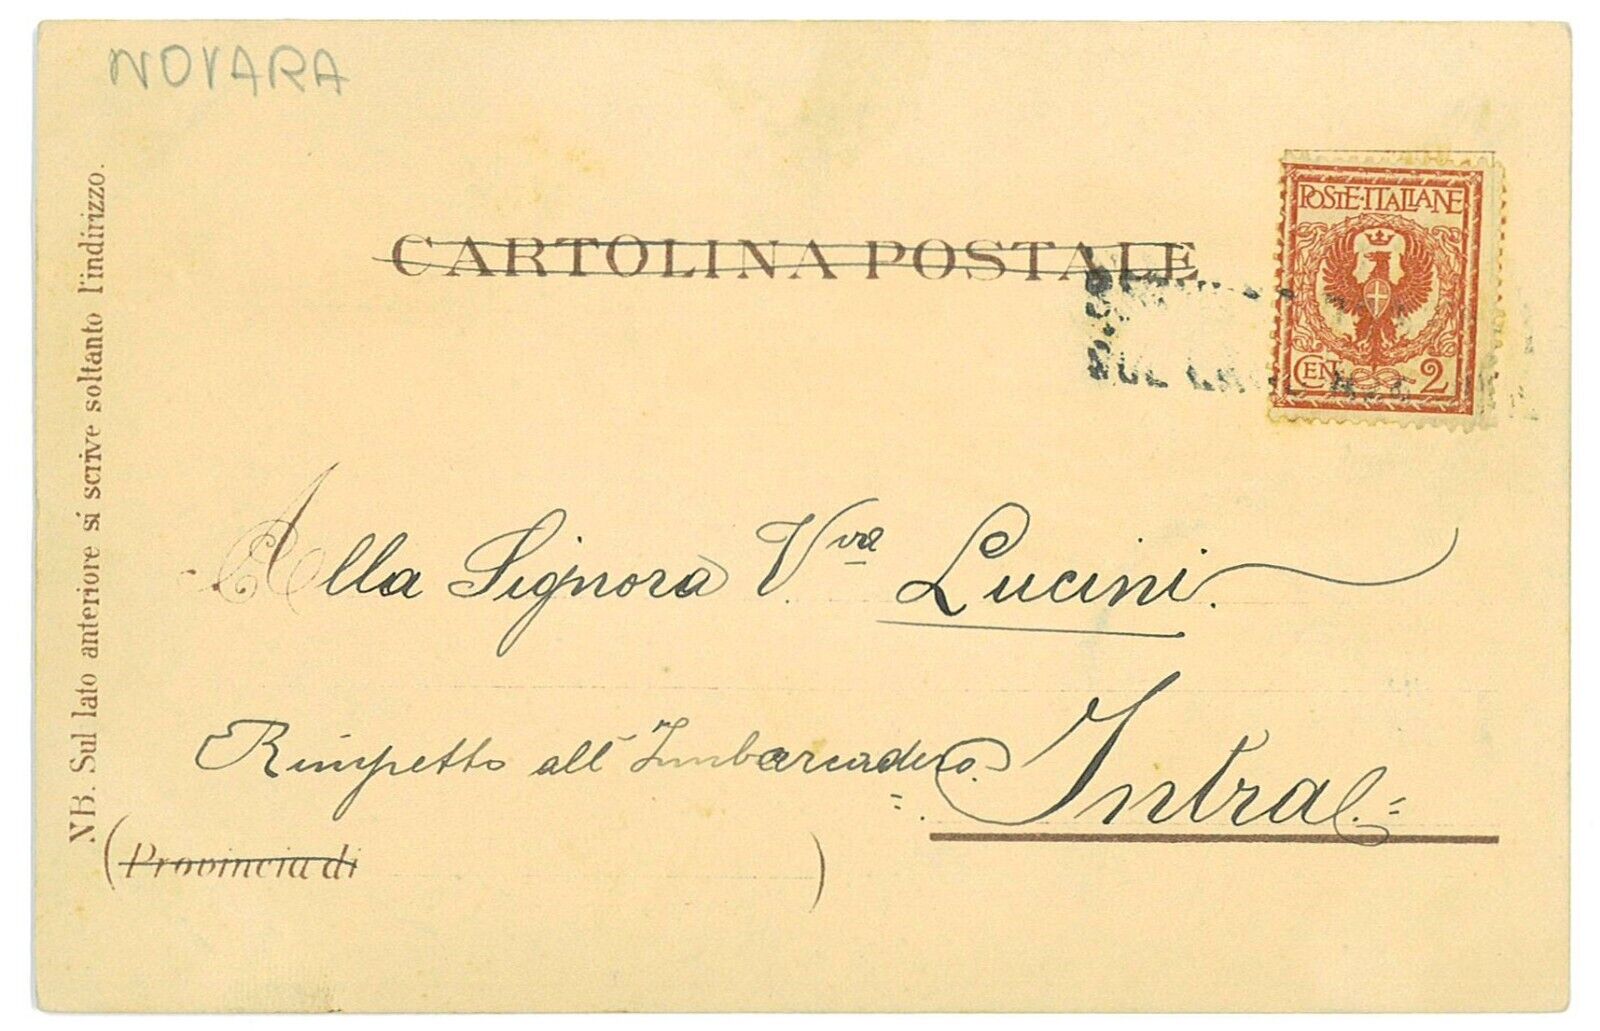 NOVARA
NB. Sul lato anteriore si scrive soltanto l'indirizzo.
CARTOLINA POSTALE
POSTE·ITALIANE
CEN. 2
SUL
Alla Signora Vva Lucini
Rimpetto all' Imbarcadero.
Intra
(Provincia di )